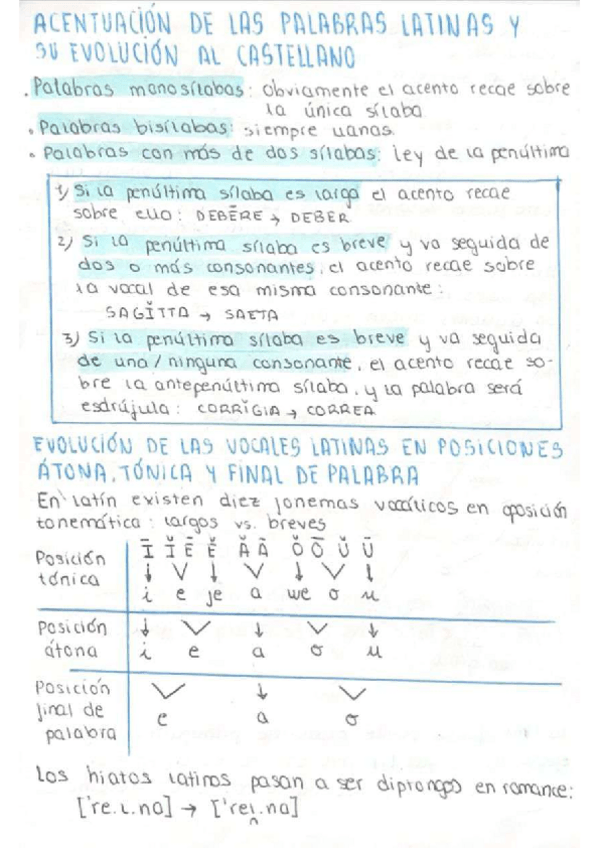 ACENTUACIÓN DE LAS PALABRAS LATINAS Y
SU EVOLUCIÓN AL CASTELLANO
• Palabras monosílabas: obviamente el acento recae sobre
la única sílaba
• Palabras bisílabas: siempre llanas.
• Palabras con más de dos sílabas: ley de la penúltima
1) Si la penúltima sílaba es larga el acento recae
sobre ella: DEBĒRE → DEBER
2) Si la penúltima sílaba es breve y va seguida de
dos o más consonantes, el acento recae sobre
la vocal de esa misma consonante:
SAGĬTTA → SAETA
3) Si la penúltima sílaba es breve y va seguida
de una/ninguna consonante, el acento recae so-
bre la antepenúltima sílaba, y la palabra será
esdrújula: CORRĬGIA → CORREA
EVOLUCIÓN DE LAS VOCALES LATINAS EN POSICIONES
ÁTONA, TÓNICA Y FINAL DE PALABRA
En latín existen diez fonemas vocálicos en oposición
tonemática: largos vs. breves
Ī Ĭ Ē Ĕ Ă Ā Ŏ Ō Ŭ Ū
Posición
tónica
↓ V ↓ V ↓ V ↓
i e je a we o u
Posición
átona
↓ V ↓ V ↓
i e a o u
Posición
final de
palabra
V ↓ V
e a o
Los hiatos latinos pasan a ser diptongos en romance:
['re.i.na] → ['rei̯.na]